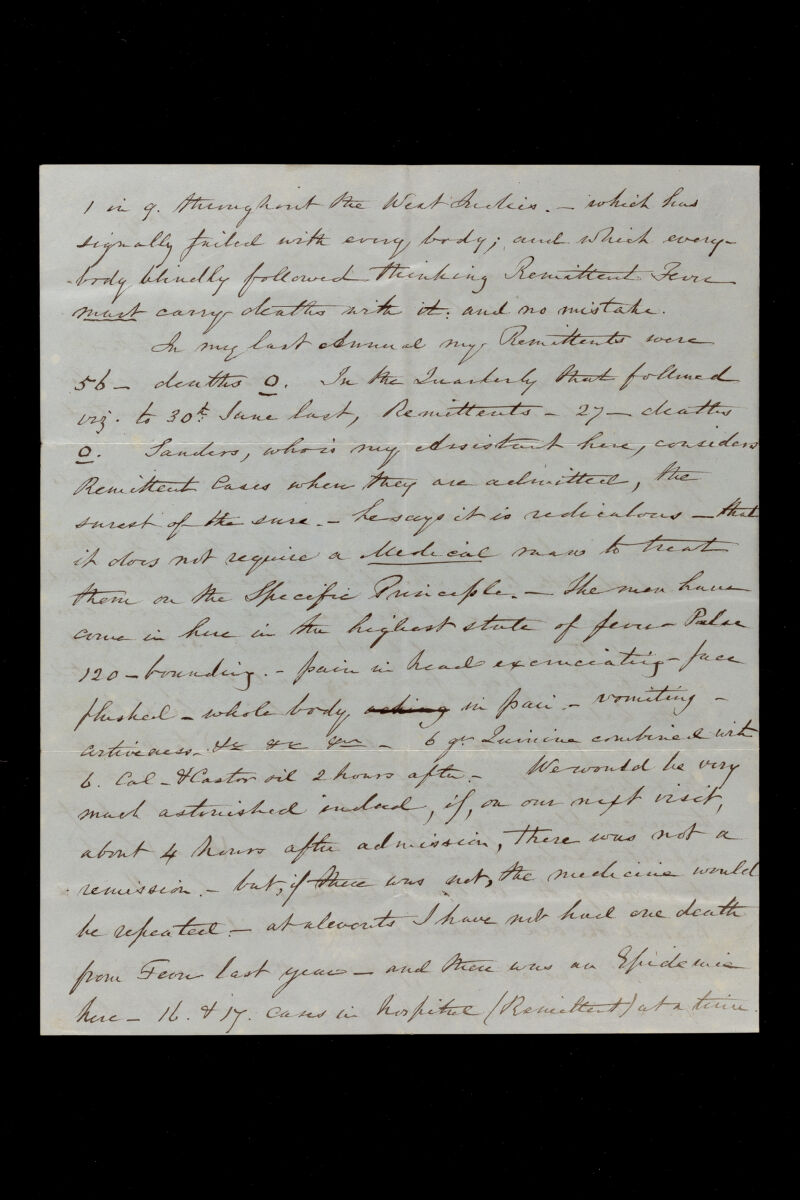 1 in 9. throughout the West Indies. – which has
signally failed with every body; and which every-
body blindly followed thinking Remittent Fever
must carry deaths with it: and no mistake.
In my last Annual my Remittents were
56 – deaths 0. In the Quarterly that followed
viz. to 30th June last, Remittents – 27 – deaths
0. Sanders, who is my Assistant here, considers
Remittent Cases when they are admitted, the
surest of the sure. – he says it is rediculous – that
it does not require a Medical man to treat
them on the Specific Principle. – The men have
come in here in the highest state of fever – Pulse
120 – bounding. – pain in head excruciating – face
flushed – whole body aching in pain – vomiting –
costiveness &c &c &c – 6 grs Quinine combined with
6. Cal – & Castor oil 2 hours after. – We would be very
much astonished indeed, if, on our next visit,
about 4 hours after admission, there was not a
remission. – but, if there was not, the medicine would
be repeated. – at alevents I have not had one death
from Fever last year – and there was an Epidemic
here – 16. & 17. cases in hospital (Remittent) at a time.